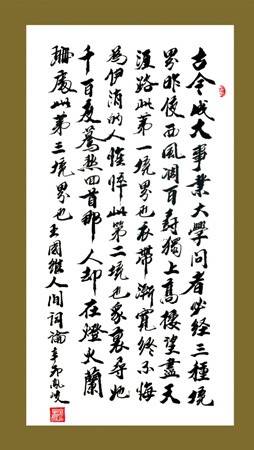 古今成大事業大學問者必经三種境
界昨夜西風凋百尌獨上高樓望盡天
涯路此第一境界也衣帶漸寬终不悔
為伊消的人憔悴此第二境也眾裏尋她
千百度驀然回首那人却在燈火蘭
珊處此第三境界也王國維人间词論辛卯